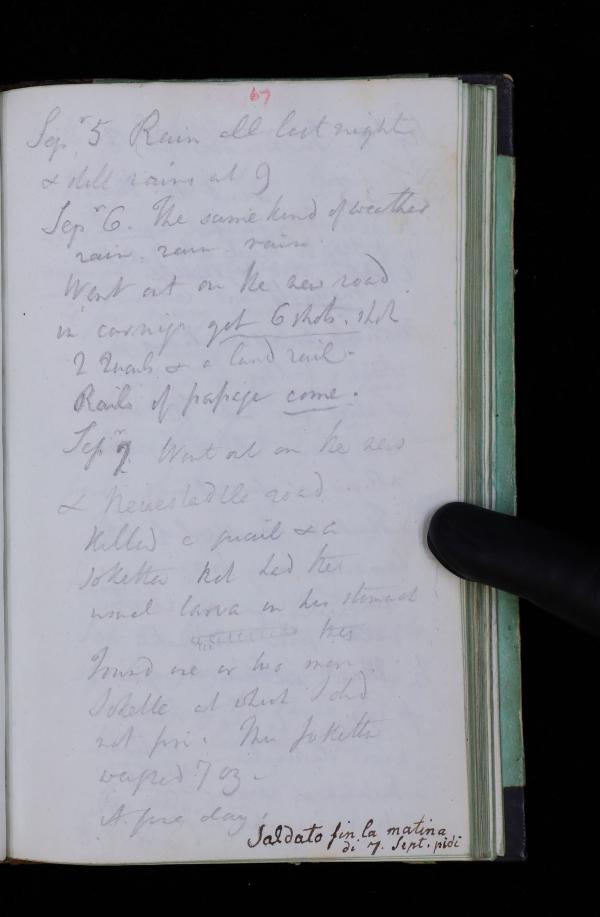 67
Sepr 5 Rain all last night
& still rains at 9
Sepr 6. The same kind of weather
rain. rain rain.
Went out on the new road
in carriage got 6 shots. shot
2 Quails & a land rail.
Rails of passage come.
Sepr 7 Went out on the new
& road
killed a quail & a
that had the
usual larva in his stomach
found one or two more
at which I did
not fire. This
weighed 7 oz.
A fine day.
Saldato fin la matina
di 7. Sept. pidi